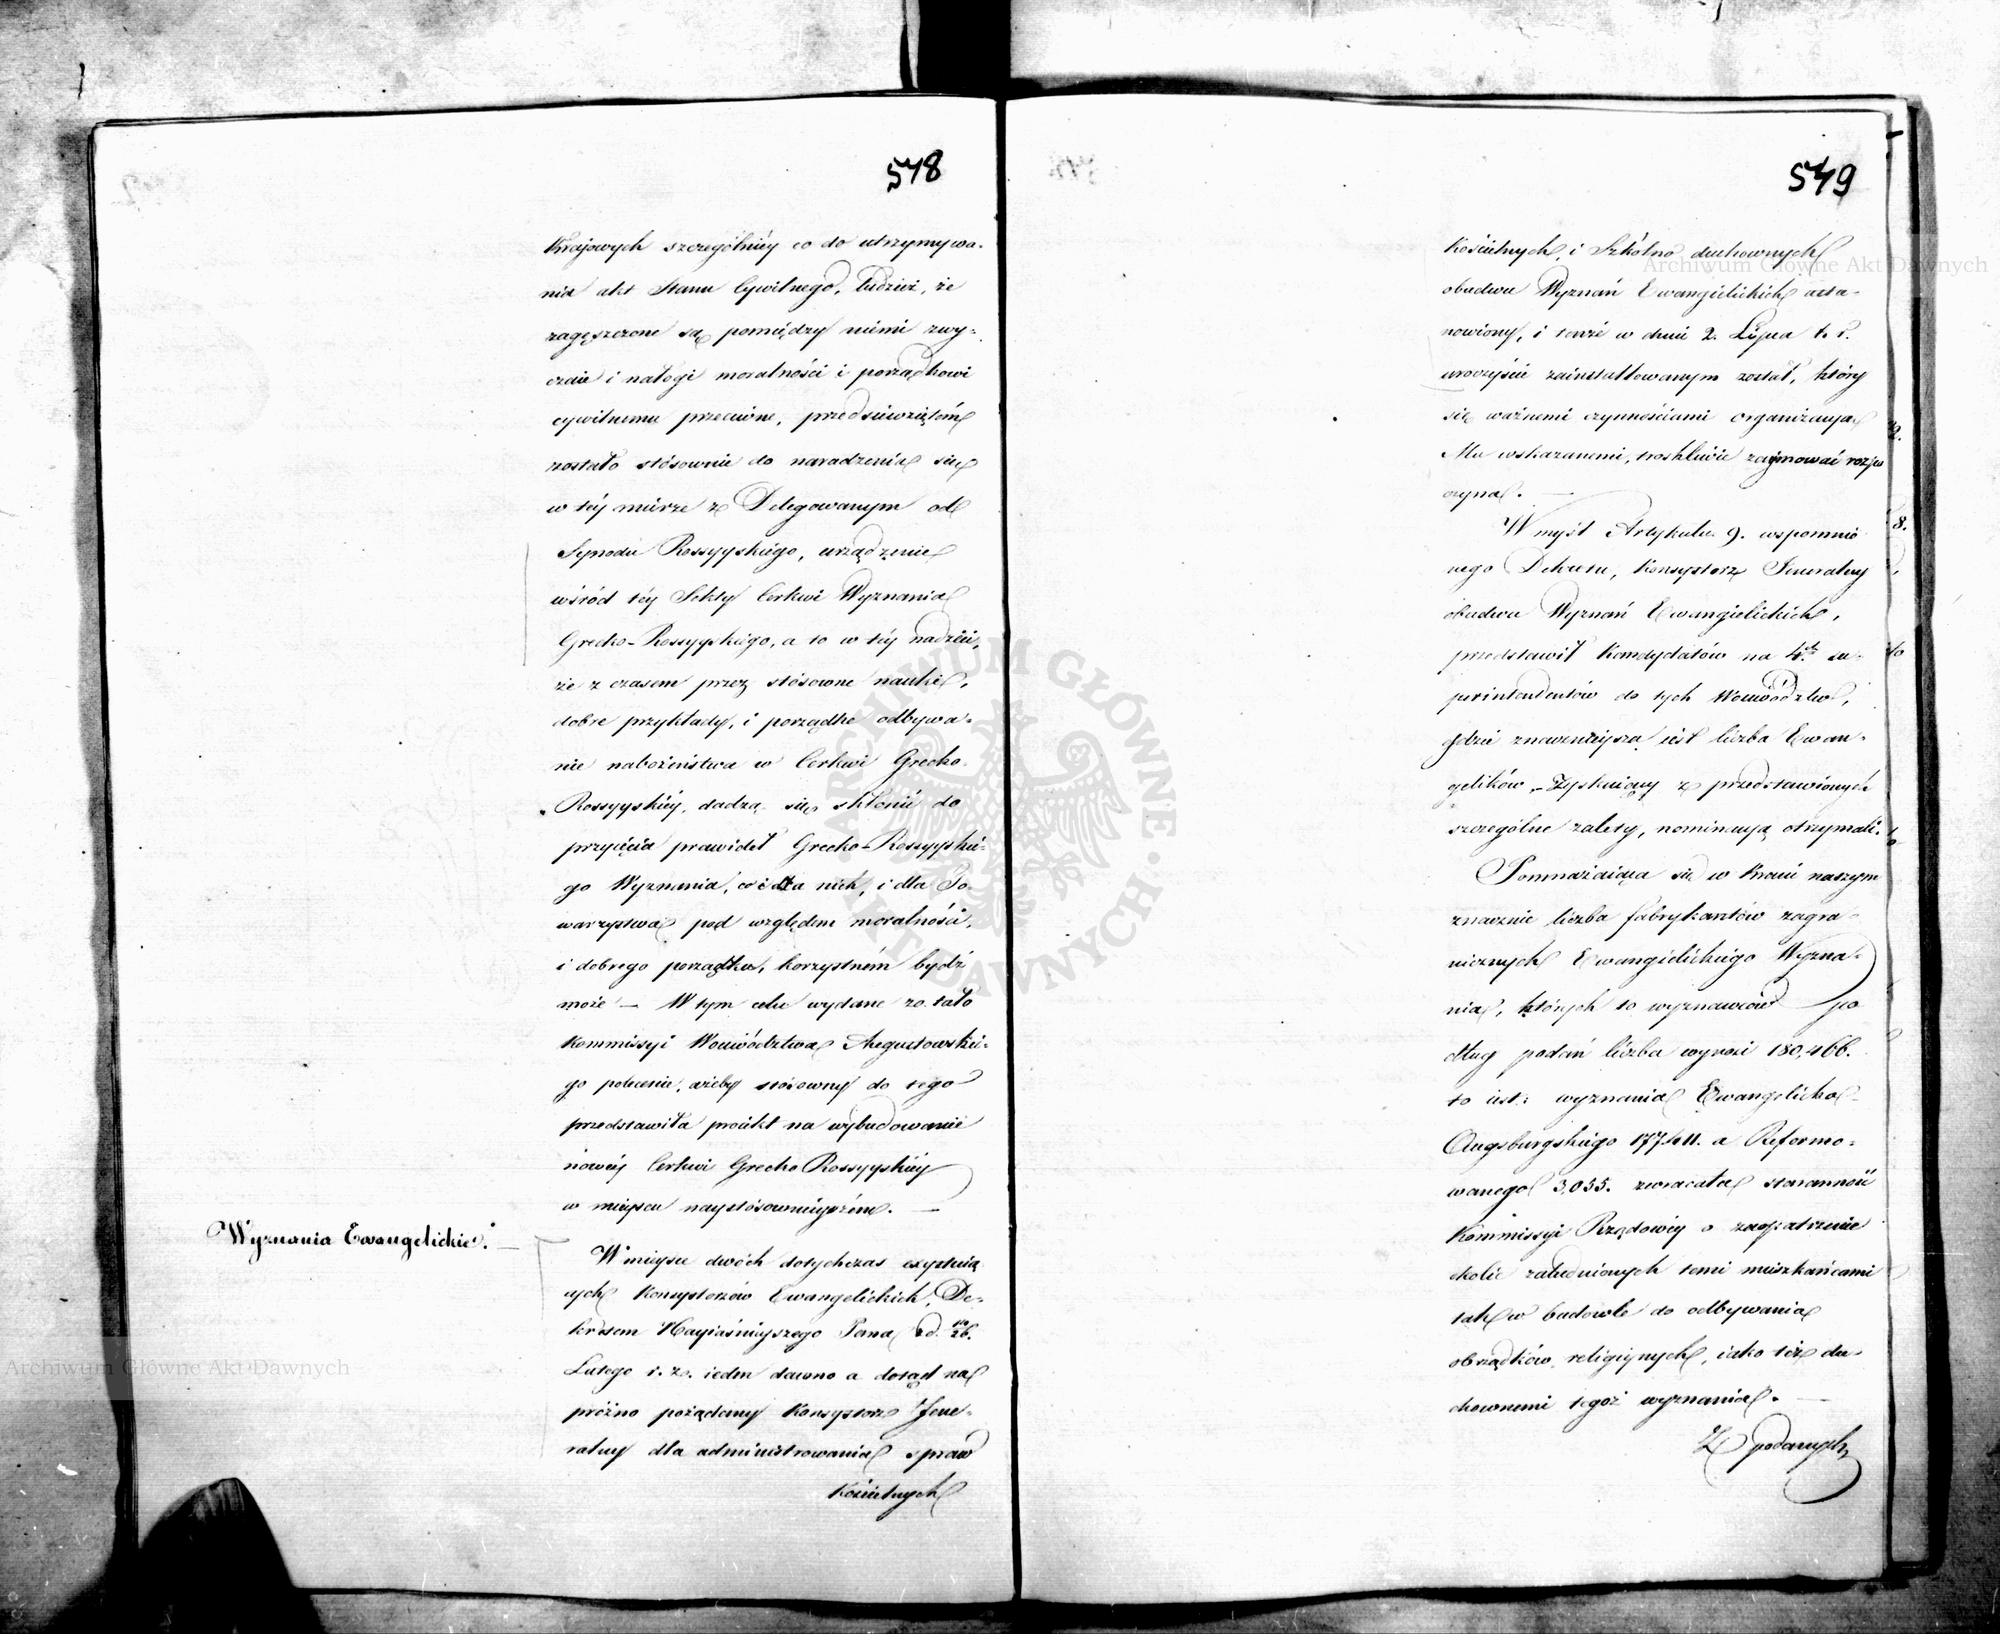 548
Kraiowych szczególniéy co do utrzymywa-
nia akt Stanu Cywilnego, tudzież, że
zagęszczone są pomiędzy niémi zwy-
czaie i nałogi moralności i porządkowi
cywilnemu przeciwne, przedsięwziętém
zostało stósownie do naradzenia się
w téy mierze z Delegowanym od
Synodu Rossyyskiego, urządzenie
wśród téy Sekty Cerkwi Wyznania
Grecko-Rossyyskiego, a to w téy nadziei,
że z czasem przez stósowne nauki,
dobre przykłady, i porządke odbywa-
nie nabożeństwa w Cerkwi Grecko-
Rossyyskiéy, dadzą się skłonić do
przyięcia prawideł Grecko-Rossyyskie-
go Wyznania, co i dla nich, i dla To-
warzystwa pod względem moralności,
i dobrego porządku, korzystném bydź
może — W tym celu wydane zostało
Kommissyi Woiewództwa Augustowskie-
go polecenie, ażeby stósowny do tego
przedstawiła proiekt na wybudowanie
nowéy Cerkwi Grecko Rossyyskiéy
w mieyscu naystósownieyszém. —
Wyznania Ewangelickie. —
W mieysce dwóch dotychczas exystuią
cych Konsystorzów Ewangelickich, De-
kretem Nayiaśnieyszego Pana z d. 26.
Lutego r. z. ieden dawno a dotąd na
próżno pożądany Konsystorz Jene-
ralny dla administrowania spraw
Kościelnych
549
Kościelnych, i Szkolno duchownych
obudwu Wyznań Ewangielickich usta-
nowiony, i tenże w dniu 2. Lipca t. r.
uroczyście zainstallowanym został, który
się ważnemi czynnościami organizacyą
Mu wskazanemi, troskliwie zaymować rozpo
czyna. —
W myśl Artykułu 9. wspomnio
nego Dekretu, Konsystorz Jeneralny
obudwu Wyznań Ewangielickich,
przedstawił Kandydatów na 4ch su-
perintendentów do tych Woiewództw,
gdzie znacznieysza iest liczba Ewan-
gelików, – Zyskuiący z przedstawionych
szczególne zalety, nominacyą otrzymali.
Pomnażaiąca się w Kraiu naszym
znacznie liczba fabrykantów zagra-
nicznych Ewangielickiego Wyzna-
nia, których to wyznawców po
dług podań liczba wynosi 180,466.
to iest: wyznania Ewangelicko-
Augsburgskiego 177.411. a Reformo-
wanego 3,055. zwracała staranność
Kommissyi Rządowéy o zaopatrzenie
okolic zaludnionych temi mieszkańcami
tak w budowle do odbywania
obrządków religiynych, iako też du-
chownemi tegoż wyznania. —
Z podanych